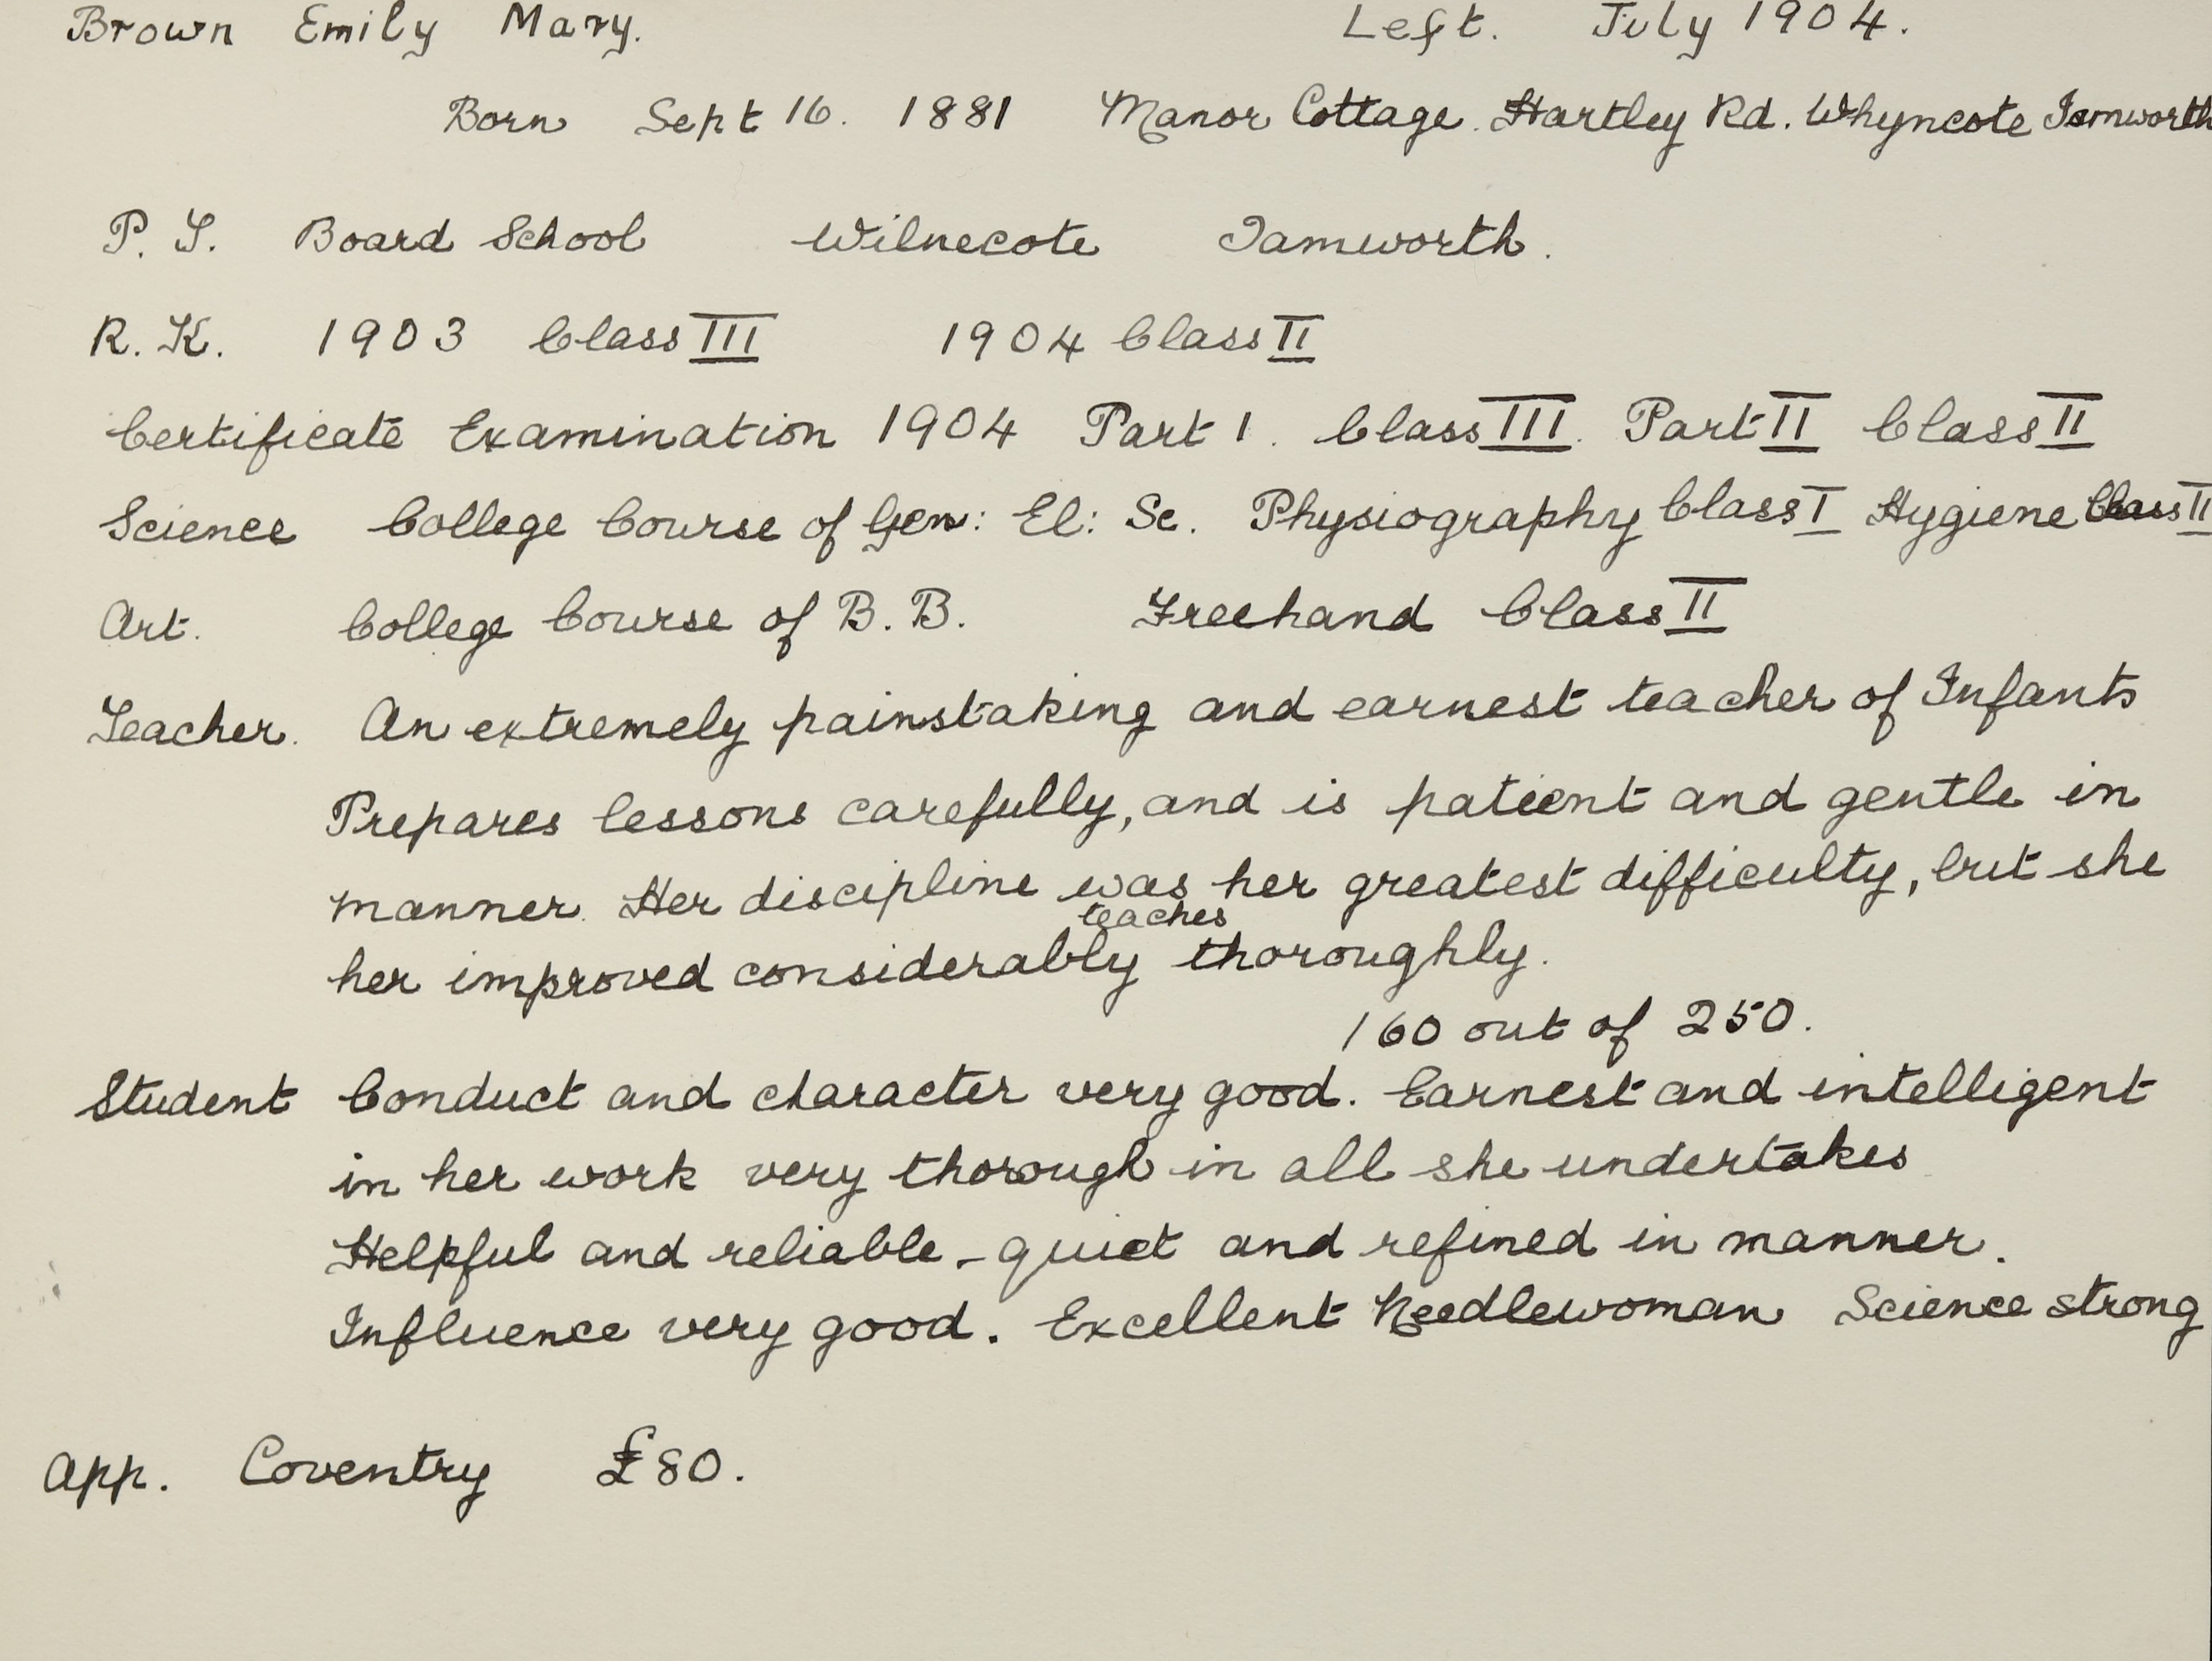 Brown Emily Mary. Left. July 1904.
Born Sept 16. 1881 Manor Cottage. Hartley Rd. Whyncote Tamworth
P. T. Board School Wilnecote Tamworth.
R. K. 1903 Class III 1904 Class II
Certificate Examination 1904 Part 1. Class III. Part II Class II
Science College Course of Gen: El: Sc. Physiography Class I Hygiene Class II
Art. College Course of B. B. Freehand Class II
Teacher. An extremely painstaking and earnest teacher of Infants
Prepares lessons carefully, and is patient and gentle in
manner. Her discipline was her greatest difficulty, but she
teaches
her improved considerably thoroughly.
160 out of 250.
Student Conduct and character very good. Earnest and intelligent
in her work very thorough in all she undertakes
Helpful and reliable - quiet and refined in manner.
Influence very good. Excellent Needlewoman Science strong
App. Coventry £80.